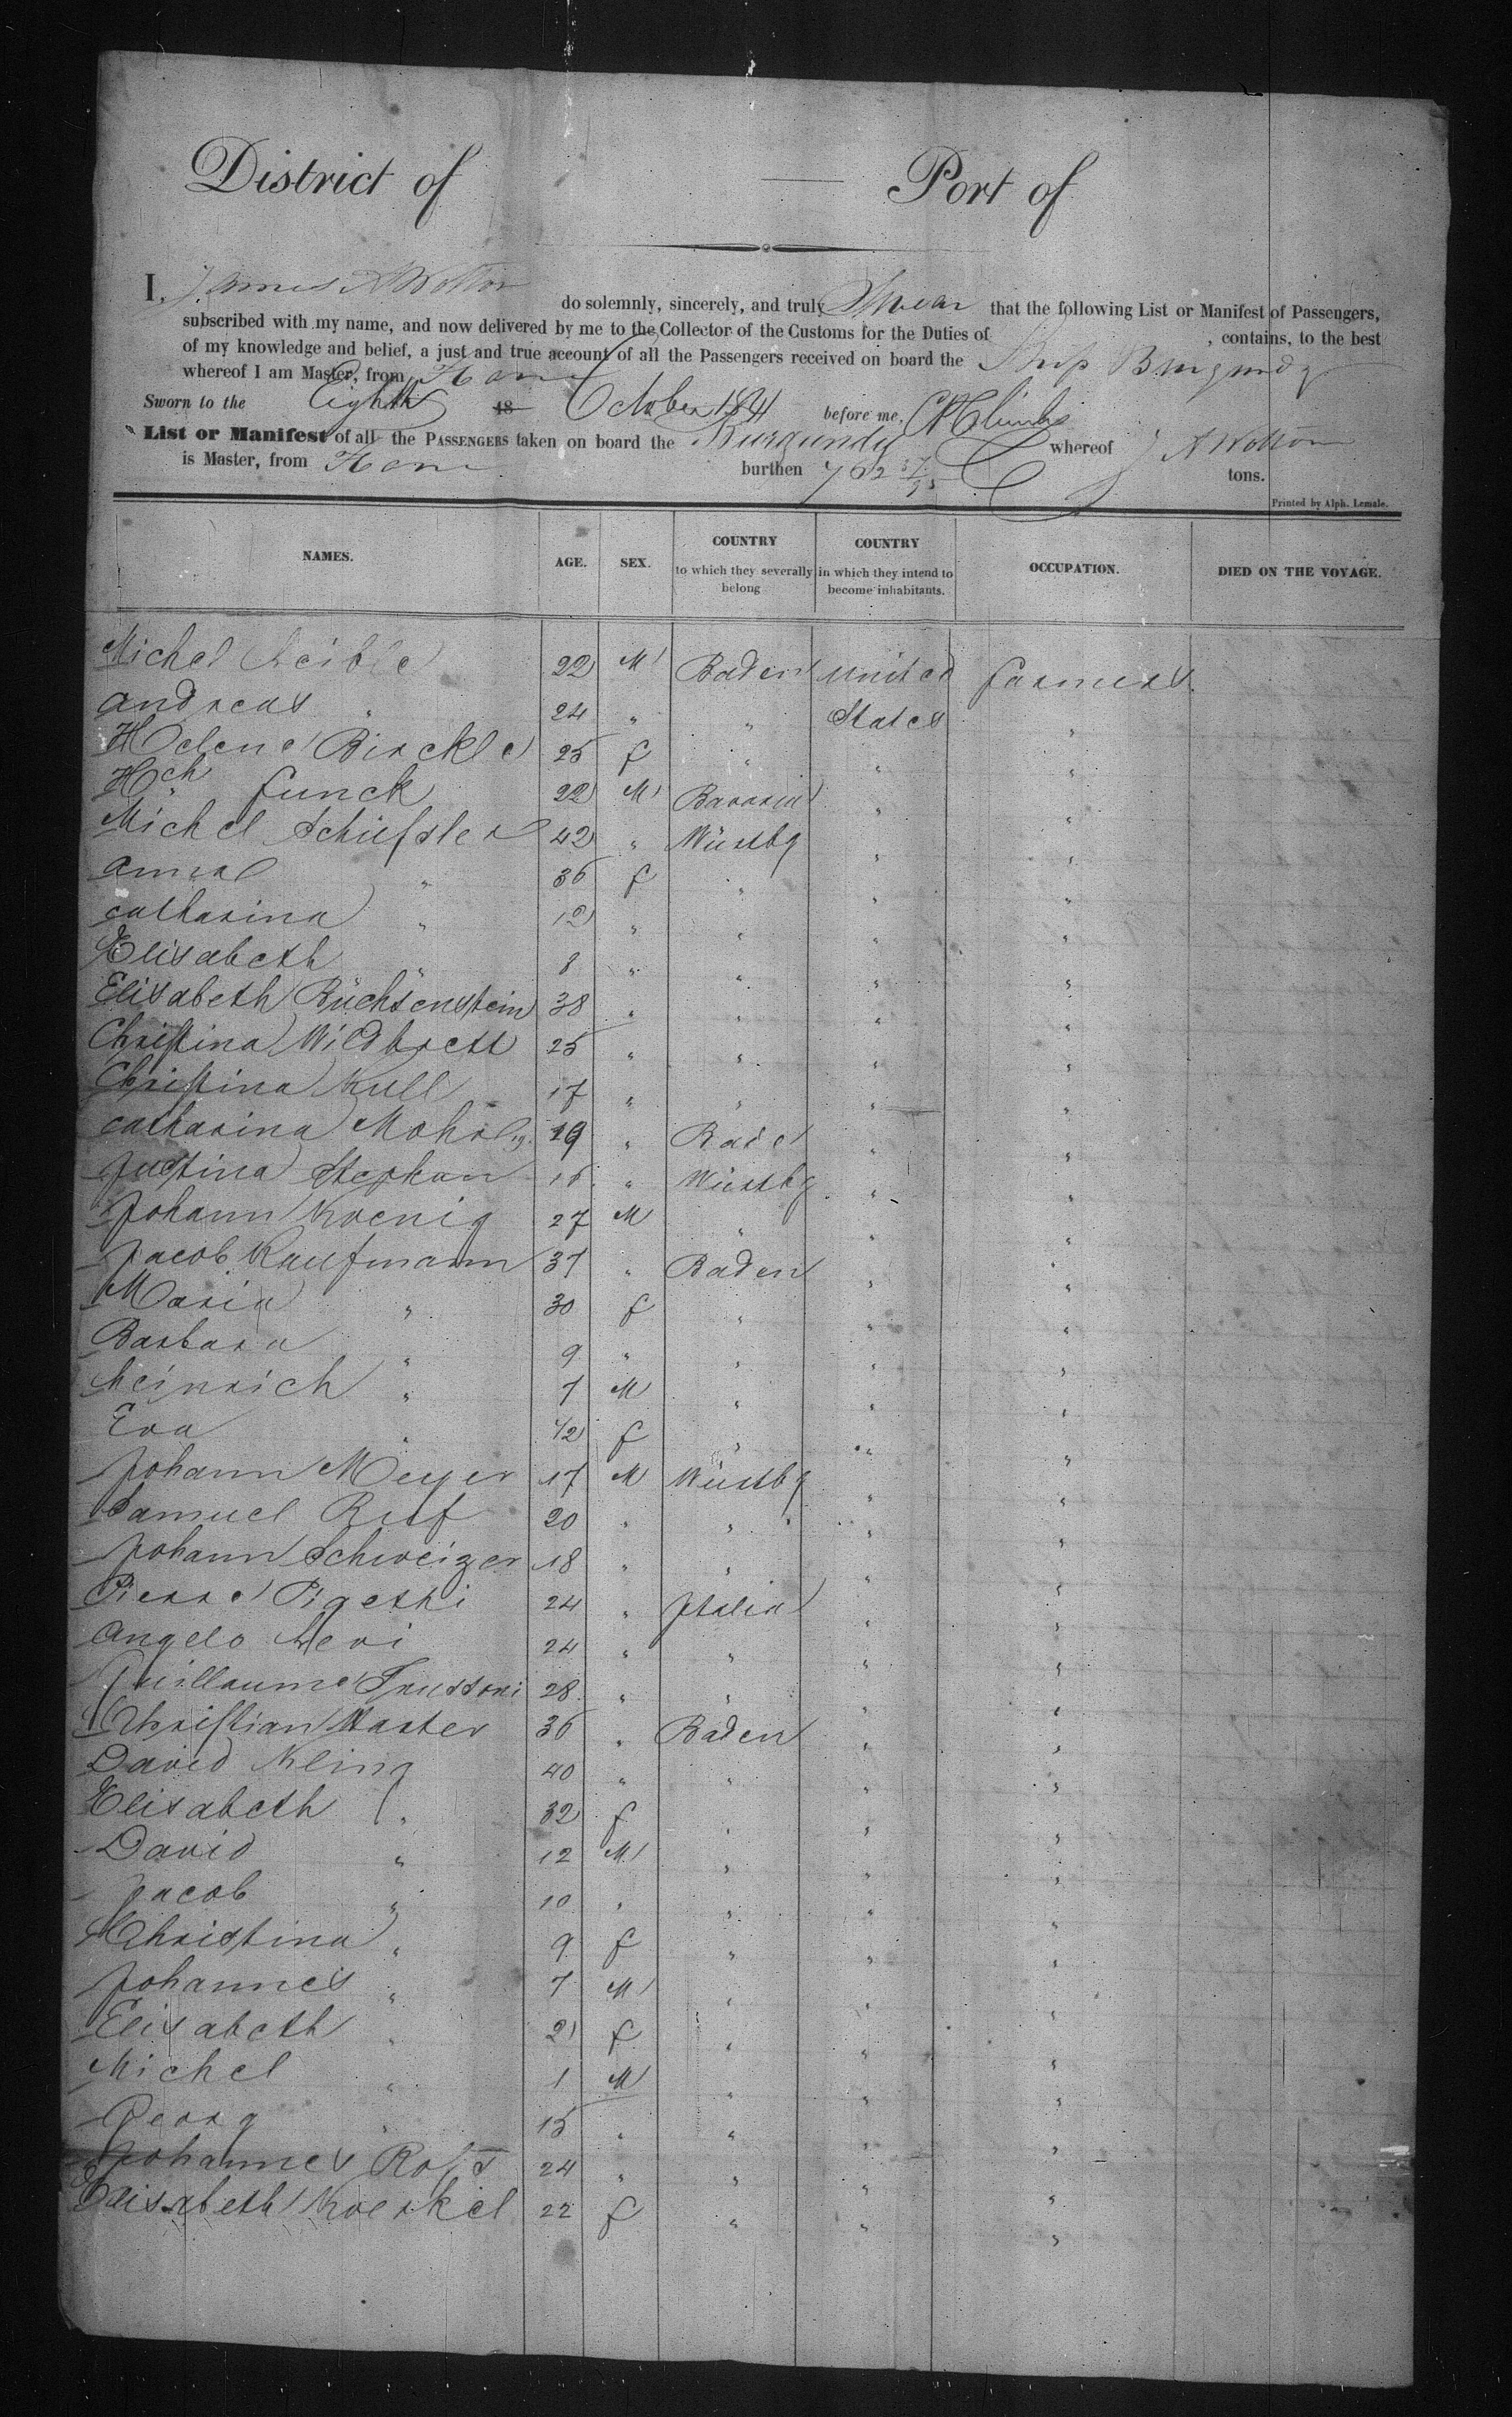 District of — Port of
I, James A Wotton do solemnly, sincerely, and truly Swear that the following List or Manifest of Passengers,
subscribed with my name, and now delivered by me to the Collector of the Customs for the Duties of , contains, to the best
of my knowledge and belief, a just and true account of all the Passengers received on board the Ship Burgundy
whereof I am Master, from Havre
Sworn to the Eighth 18 October 184 before me,
List or Manifest of all the PASSENGERS taken on board the Burgundy whereof J A Wotton
is Master, from Havre burthen 762 tons.
Printed by Alph. Lemale.
NAMES. AGE. SEX. COUNTRY to which they severally belong COUNTRY in which they intend to become inhabitants. OCCUPATION. DIED ON THE VOYAGE.
Michel 22 M Baden United farmers
Andreas " 24 " " States "
Helene Birckle 25 f " " "
Hch Funck 22 M Bavaria " "
Michel 42 " Würtbg " "
36 f " " "
Catharina " 12 " " " "
Elisabeth " 8 " " " "
Elisabeth Büchsenstein 38 " " " "
Christina Wildbrett 25 " " " "
Christina Kull 17 " " " "
Catharina 19 " " "
Justina Stephan 16 " Würtbg " "
Johann Koenig 27 M " " "
Jacob Kaufmann 37 " Baden " "
Maria " 30 f " " "
Barbara " 9 " " " "
heinrich " 7 M " " "
Eva " 1/2 f " " "
Johann Meyer 17 M Würtbg " "
Samuel 20 " " " "
Johann Schweizer 18 " " " "
Pierre 24 " Italia " "
Angelo 24 " " " "
Guillaume 28 " " " "
Christian 36 " Baden " "
David Kling 40 " " " "
Elisabeth " 32 f " " "
David " 12 M " " "
Jacob " 10 " " " "
Christina " 9 f " " "
Johannes " 7 M " " "
Elisabeth " 2 f " " "
Michel " 1 M " " "
Georg " 15 " " " "
Johannes 24 " " " "
Elisabeth 22 f " " "